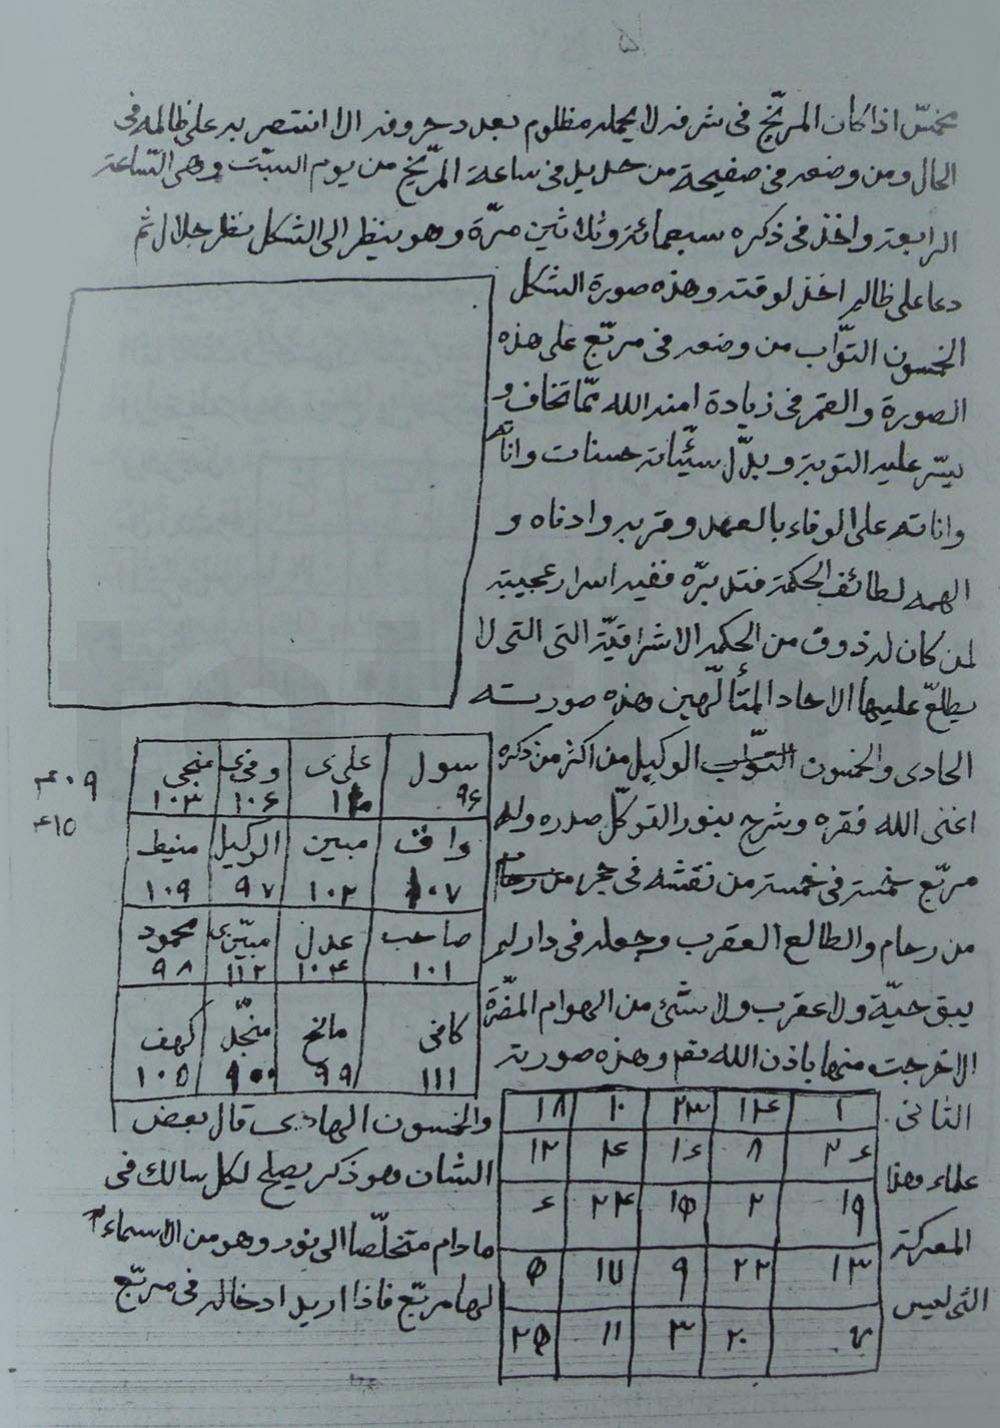 مخمّس اذا كان المرّيخ فى شرفه لا يحمله مظلوم بعدد حروفه الا انتصر به على ظالمه فى
الحال ومن وضعه فى صفيحة من حديد فى ساعة المرّيخ من يوم السبت وهى السّاعة
الرابعة واخذ فى ذكره سبعمائة وثلاثين مرّة وهو ينظر الى الشكل نظر جلال ثم
دعا على ظالم اخذ لوقته وهذه صورة الشكل
الخمسون التوّاب من وضعه فى مربّع على هذه
الصورة والقمر فى زيادة امنه الله ممّا تخاف و
يسّر عليه التوبة وبدّل سيّئاته حسنات واتاه
واناته على الوفاء بالعهد وقربه وادناه و
الهمه لطائف الحكمة فتدبّره ففيه اسرار عجيبة
لمن كان له ذوق من الحكمه الاشراقيّة التى التى لا
يطلع عليها الا احاد المتألّهين وهذه صورته
الحادى والخمسون التوّاب الوكيل من اكثر من ذكره
اغنى الله فقره وشرح بنور التوكّل صدره وله
مربّع خمسة فى خمسة من نقشه فى حجر من رخا
من رخام والطالع العقرب وجعله فى دار لم
يبق حيّة ولا عقرب ولا شئ من الهوام المضّرة
الا خرجت منها باذن الله تعم وهذه صورته
سول ٩٤ علىّ ١١٠ وفىّ ١٠٦ منجى ١٠٣
واق ١٠٧ مبين ١٠٢ الوكيل ٩٧ منيط ١٠٩
صاحب ١٠١ عدل ١٠٤ مبيّن ١١٢ محمود ٩٨
كافى ١١١ مانح ٩٩ منجّل ١٠٠ كهف ١٠٥
٤٠٩
٤١٥
١ ١٤ ٢٣ ١٠ ١٨
٢ ٨ ١٦ ٤ ١٢
١٩ ٢ ١٥ ٢٤ ٦
١٣ ٢٢ ٩ ١٧ ٥
٧ ٢٠ ٣ ١١ ٢٥
الثانى والخمسون الهادى قال بعض
علماء هذا الشان هو ذكر يصلح لكل سالك فى
المعركة ما دام متخلّصا الى نور وهو من الاسماء
التى ليس لها مربّع فاذا اريد ادخاله فى مربّع